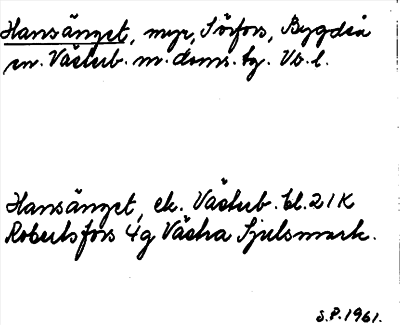 Hansänget, myr, Sörfors, Bygdeå
sn. Västerb. m. doms. tg. Vb. l.
Hansänget, ek. Västerb. bl. 21K
Robertsfors 4g Västra Sjulsmark.
S.P. 1961.